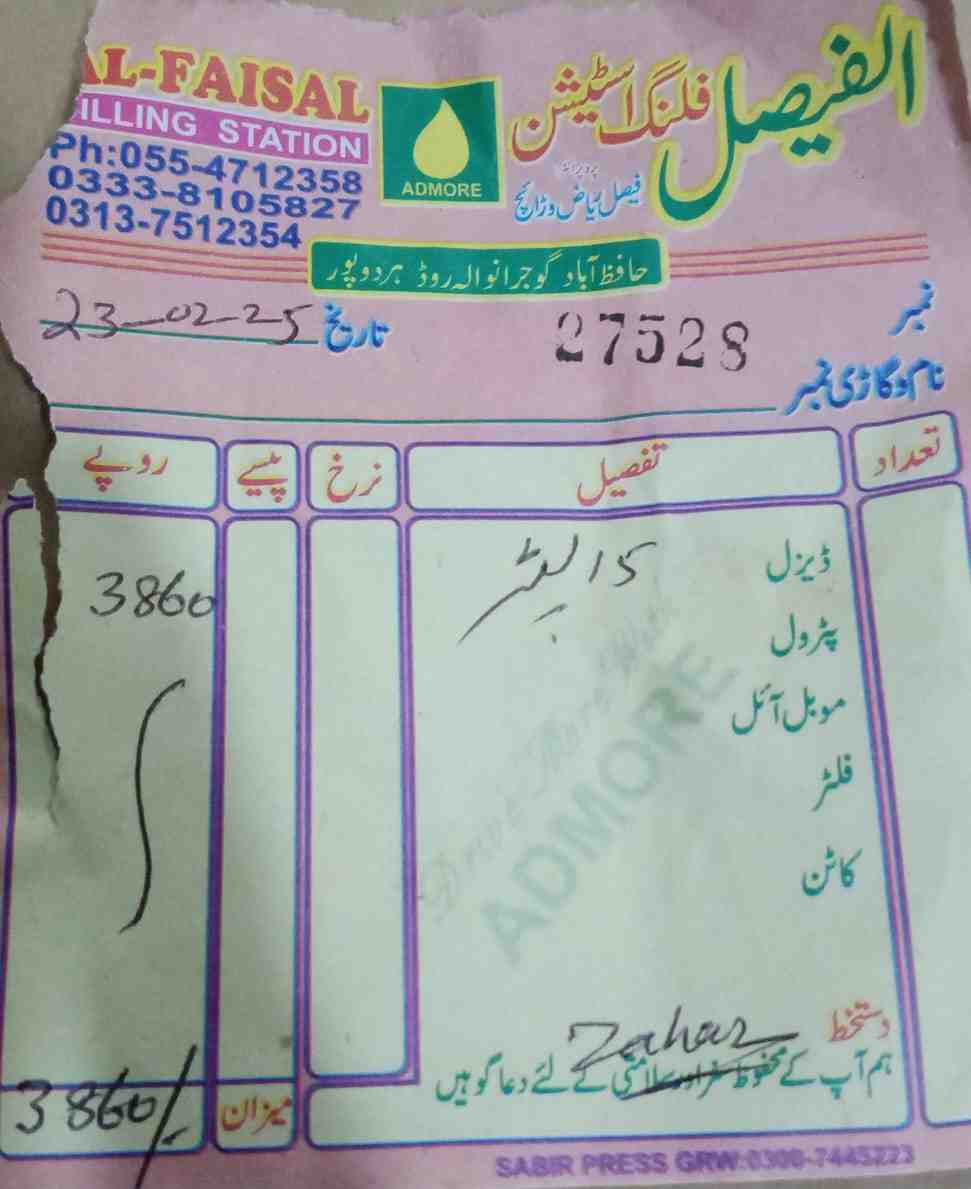 AL-FAISAL
FILLING STATION
Ph:055-4712358
0333-8105827
0313-7512354
ADMORE
الفیصل فلنگ اسٹیشن
پروپرائٹر
فیصل ریاض وڑائچ
حافظ آباد گوجرانوالہ روڈ ہردوپور
نمبر 27528 تاریخ 23-02-25
نام و گاڑی نمبر
تعداد تفصیل نرخ پیسے روپے
ڈیزل 15 لیٹر 3860
پٹرول
موبل آئل
فلٹر
کاٹن
Drive More With
ADMORE
دستخط
ہم آپ کے محفوظ سفر اور سلامتی کے لئے دعا گو ہیں
میزان 3860/-
SABIR PRESS GRW:0300-7445223